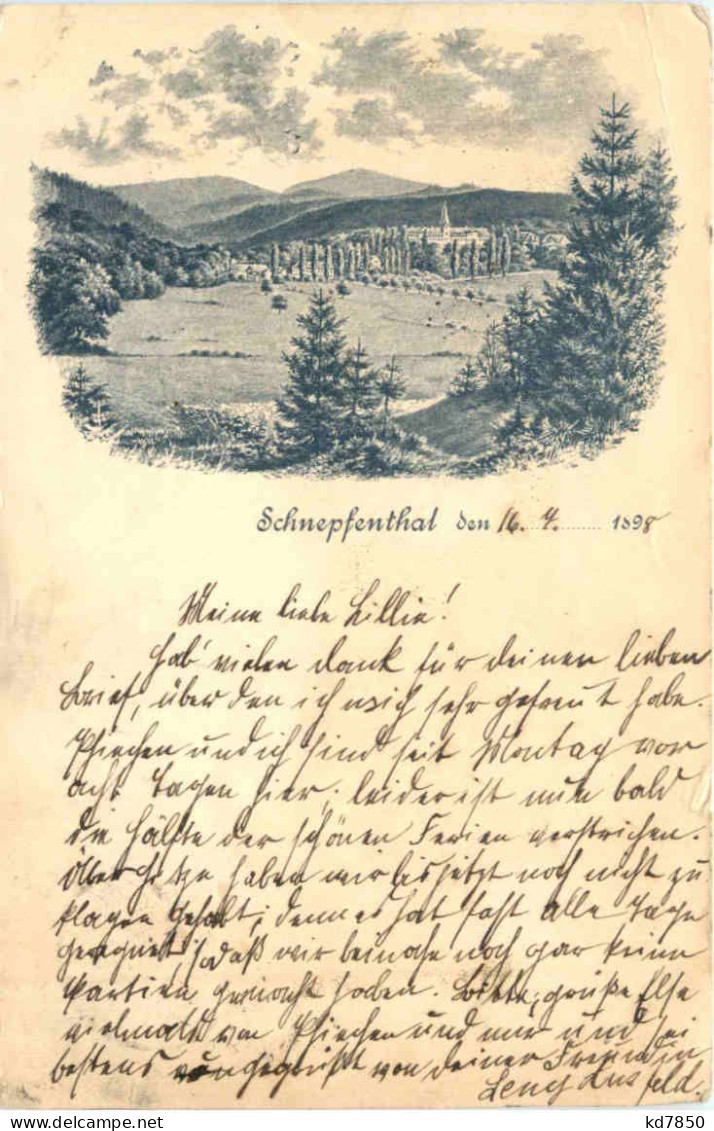 Schnepfenthal den 16. 7. 1898
Meine liebe Lillie!
Hab' vielen Dank für deinen lieben
Brief, über den ich mich sehr gefreut habe.
und ich sind seit Montag vor
acht Tagen hier; leider ist nun bald
die Hälfte der schönen Ferien verstrichen.
Über Hitze haben wir bis jetzt noch nicht zu
klagen gehabt; denn es hat fast alle Tage
geregnet, sodaß wir beinahe noch gar keine
Partien gemacht haben. Bitte, grüße Else
vielmals von und mir und sei
bestens gegrüßt von deiner Freundin
Leny
kd7850